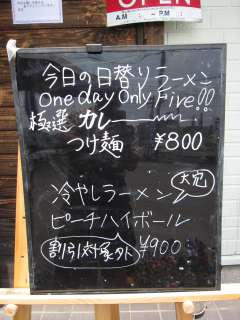 OPEN
A.M.
P.M.
今日の日替りラーメン
One day Only Five!!
極選 カレー
つけ麺 ¥800
冷やしラーメン
ピーチハイボール
割引対象外 ¥900